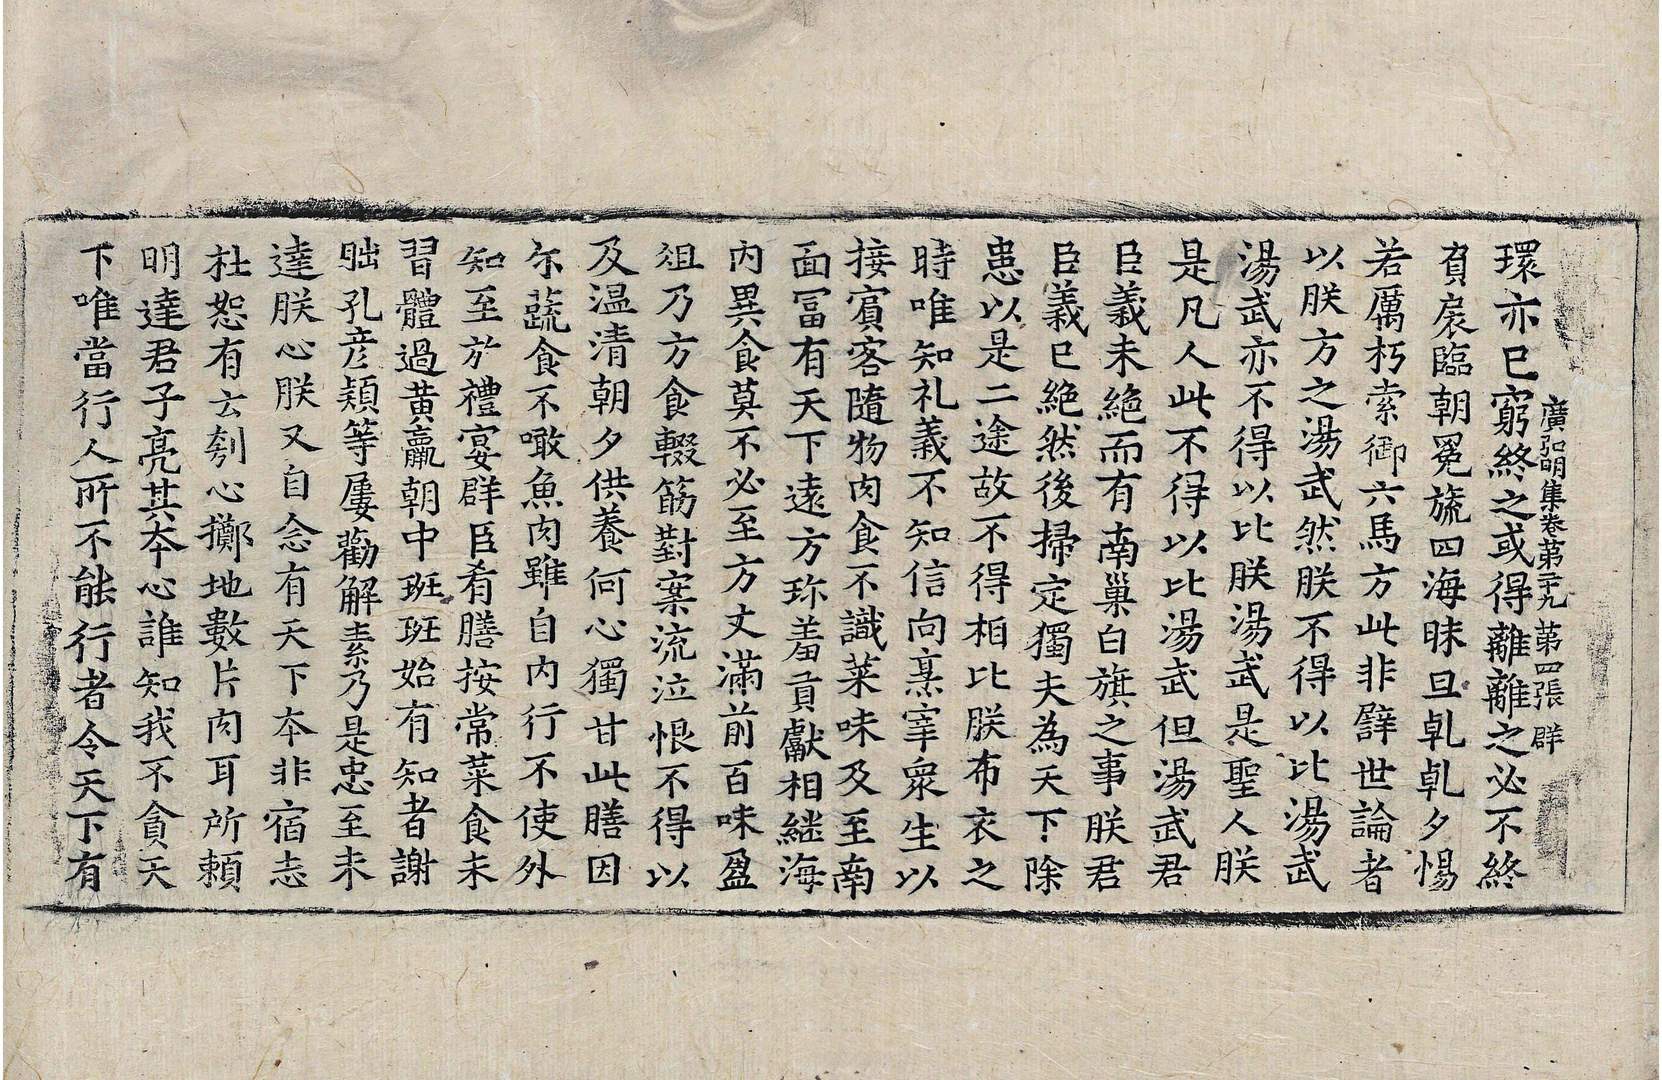 廣弘明集卷第二十九 第四張 群
環亦已窮終之或得離離之必不終
負扆臨朝冕旒四海昧旦乹乹夕惕
若厲朽索御六馬方此非譬世論者
以朕方之湯武然朕不得以比湯武
湯武亦不得以比朕湯武是聖人朕
是凡人此不得以比湯武但湯武君
臣義未絶而有南巢白旗之事朕君
臣義已絶然後掃定獨夫為天下除
患以是二途故不得相比朕布衣之
時唯知礼義不知信向烹宰衆生以
接賓客隨物肉食不識菜味及至南
面冨有天下遠方珎羞貢獻相継海
內異食莫不必至方丈滿前百味盈
俎乃方食輟筯對案流泣恨不得以
及温清朝夕供養何心獨甘此膳因
尓蔬食不噉魚肉雖自內行不使外
知至於禮宴群臣肴膳按常菜食未
習體過黃羸朝中班班始有知者謝
朏孔彦穎等屢勸解素乃是忠至未
達朕心朕又自念有天下本非宿志
杜恕有云刳心擲地數片肉耳所賴
明達君子亮其本心誰知我不貪天
下唯當行人所不能行者令天下有